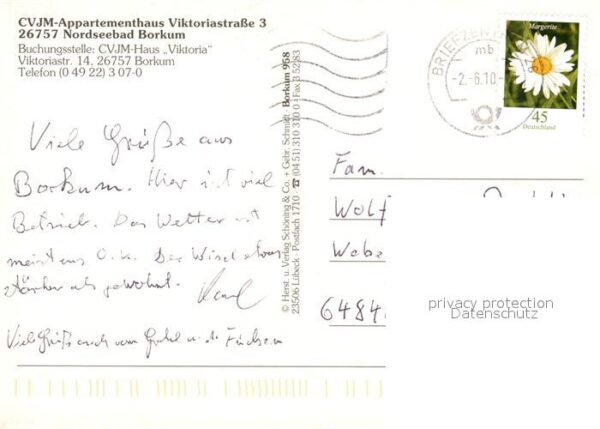 CVJM-Appartementhaus Viktoriastraße 3
26757 Nordseebad Borkum
Buchungsstelle: CVJM-Haus „Viktoria"
Viktoriastr. 14, 26757 Borkum
Telefon (0 49 22) 3 07-0
Viele Grüße aus
Borkum. Hier ist viel
Betrieb. Das Wetter ist
meistens O.k. Der Wind etwas
stärker als gewohnt. Karl
Viele Grüße auch von
© Herst. u. Verlag Schöning & Co. + Gebr. Schmidt
23506 Lübeck · Postfach 1710 · ☎ (04 51) 310 310
Borkum 958
BRIEFZEN
mb
-2.-6.10-
Margerite
45
Deutschland
Fam.
Wolf
Webe
6484
privacy protection
Datenschutz